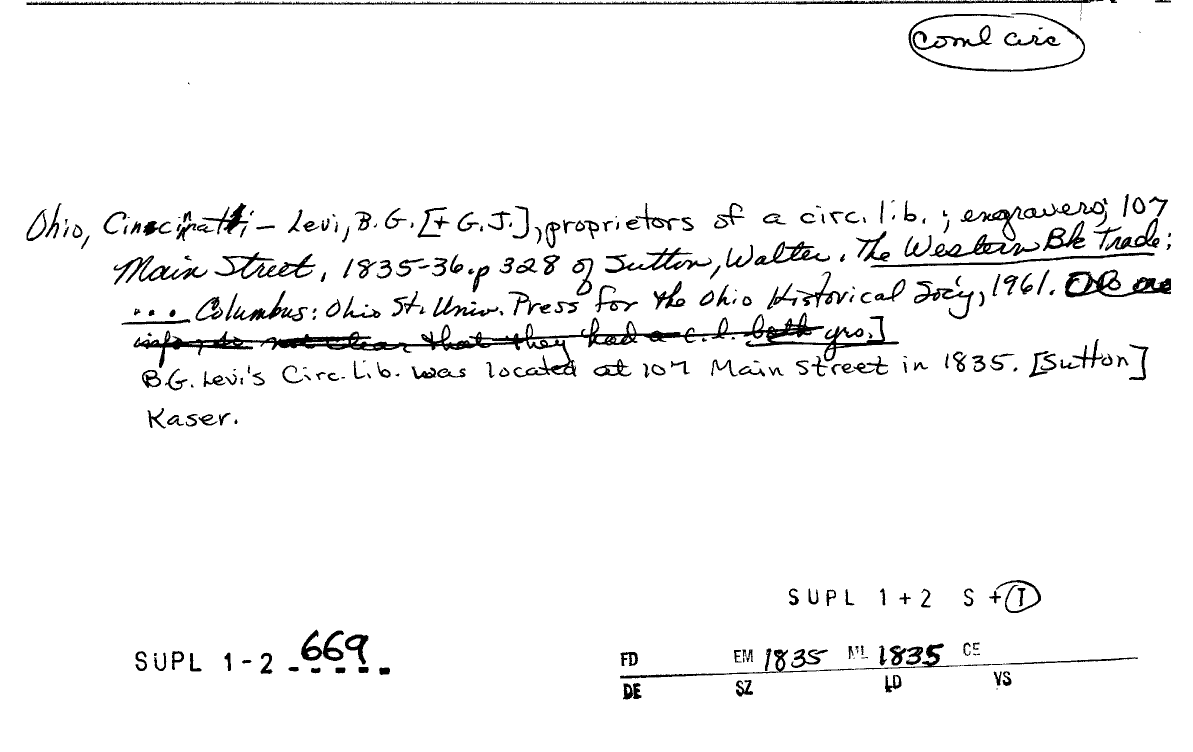 Coml circ
Ohio, Cincinatti – Levi, B.G. [+ G.J.], proprietors of a circ. lib. ; engravers; 107
Main Street, 1835-36. p 328 of Sutton, Walter. The Western Bk Trade:
... Columbus: Ohio St. Univ. Press for the Ohio Historical Soc'y, 1961.
not clear that they had a c.l. both yrs.]
B.G. Levi's Circ. Lib. was located at 107 Main Street in 1835. [Sutton]
Kaser.
SUPL 1+2 S + T
SUPL 1-2 669
FD EM 1835 ML 1835 CE
DE SZ LD VS